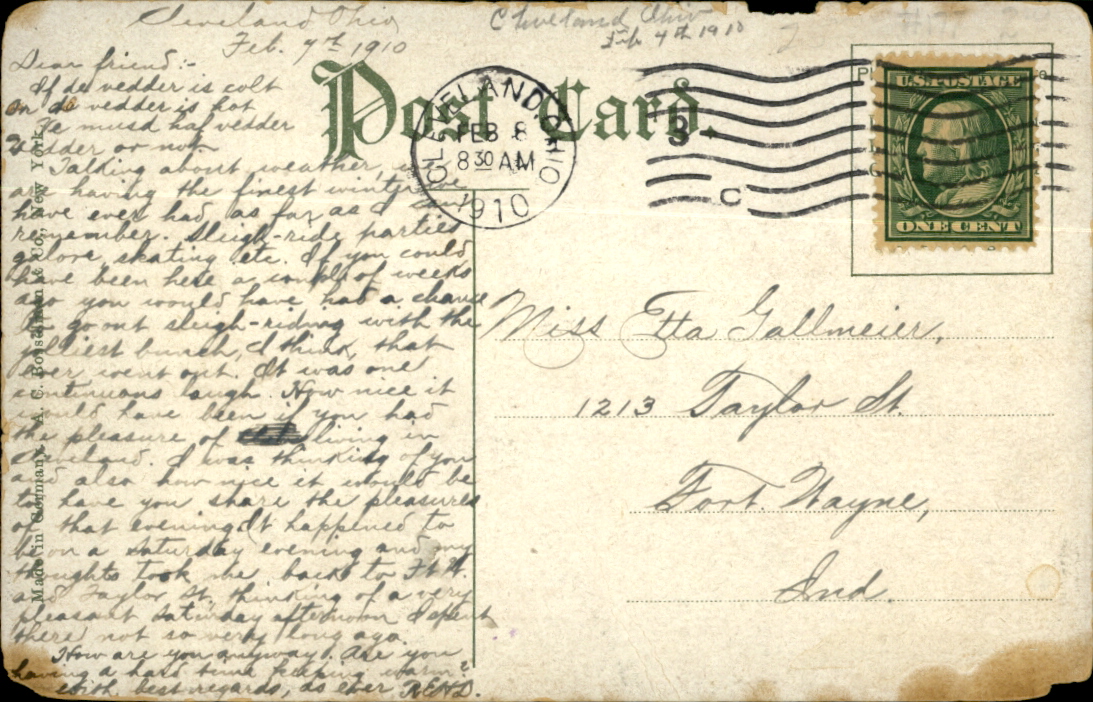 Cleveland Ohio
Feb. 7th 1910
Cleveland, Ohio
Feb 4th 1910
Post Card.
CLEVELAND, OHIO
FEB 8
8 30 AM
1910
3
C
U.S. POSTAGE
ONE CENT
Dear friend:-
If de vedder is colt
Or de vedder is hot
Ve musd haf vedder
Vedder or not.
Talking about weather, we
are having the finest winter we
have ever had, as far as I can
remember. Sleigh-ride parties
galore, skating etc. If you could
have been here a couple of weeks
ago you would have had a chance
to go out sleigh-riding with the
jolliest bunch, I think, that
ever went out. It was one
continuous laugh. How nice it
would have been if you had
the pleasure of living in
Cleveland. I was thinking of you
and also how nice it would be
to have you share the pleasures
of that evening. It happened to
be on a Saturday evening and my
thoughts took me back to Ft. W.
and Taylor St. thinking of a very
pleasant Saturday afternoon I spent
there not so very long ago.
How are you anyway? Are you
having a hard time keeping warm?
With best regards, as ever R.E.H.D.
Made in Germany. A. C. Bosselman & Co., New York.
Miss Etta Gallmeier,
1213 Taylor St.
Fort Wayne,
Ind.